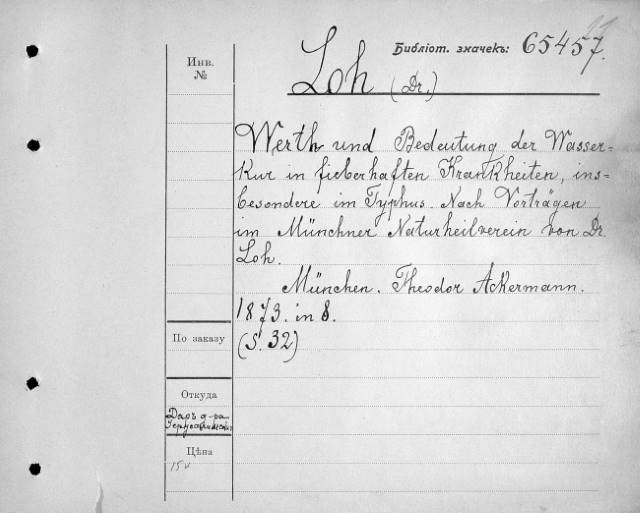 Библіот. значекъ: 65457.
Инв.
№
Loh (Dr.)
Werth und Bedeutung der Wasser-
kur in fieberhaften Krankheiten, ins-
besondere im Typhus. Nach Vorträgen
im Münchner Naturheilverein von Dr.
Loh.
München. Theodor Ackermann.
1873. in 8.
(S. 32)
По заказу
Откуда
Даръ д-ра
Цѣна
15к